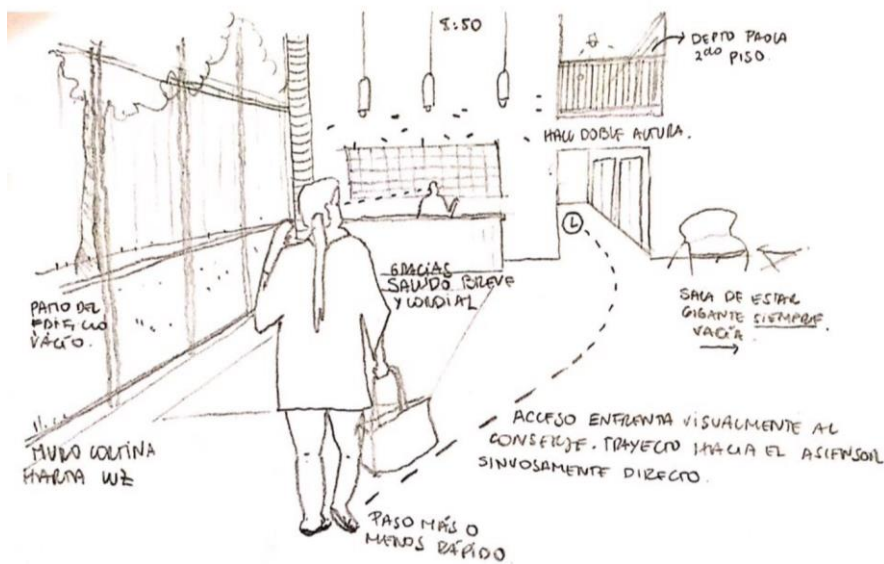 8:50
DEPTO PAOLA
2do PISO.
HALL DOBLE ALTURA.
L
GRACIAS
SALUDO BREVE
Y CORDIAL
PATIO DEL
EDIFICIO
VACÍO.
SALA DE ESTAR
GIGANTE SIEMPRE
VACÍA
MURO CORTINA
HARTA LUZ
ACCESO ENFRENTA VISUALMENTE AL
CONSERJE. TRAYECTO HACIA EL ASCENSOR
SINUOSAMENTE DIRECTO.
PASO MÁS O
MENOS RÁPIDO